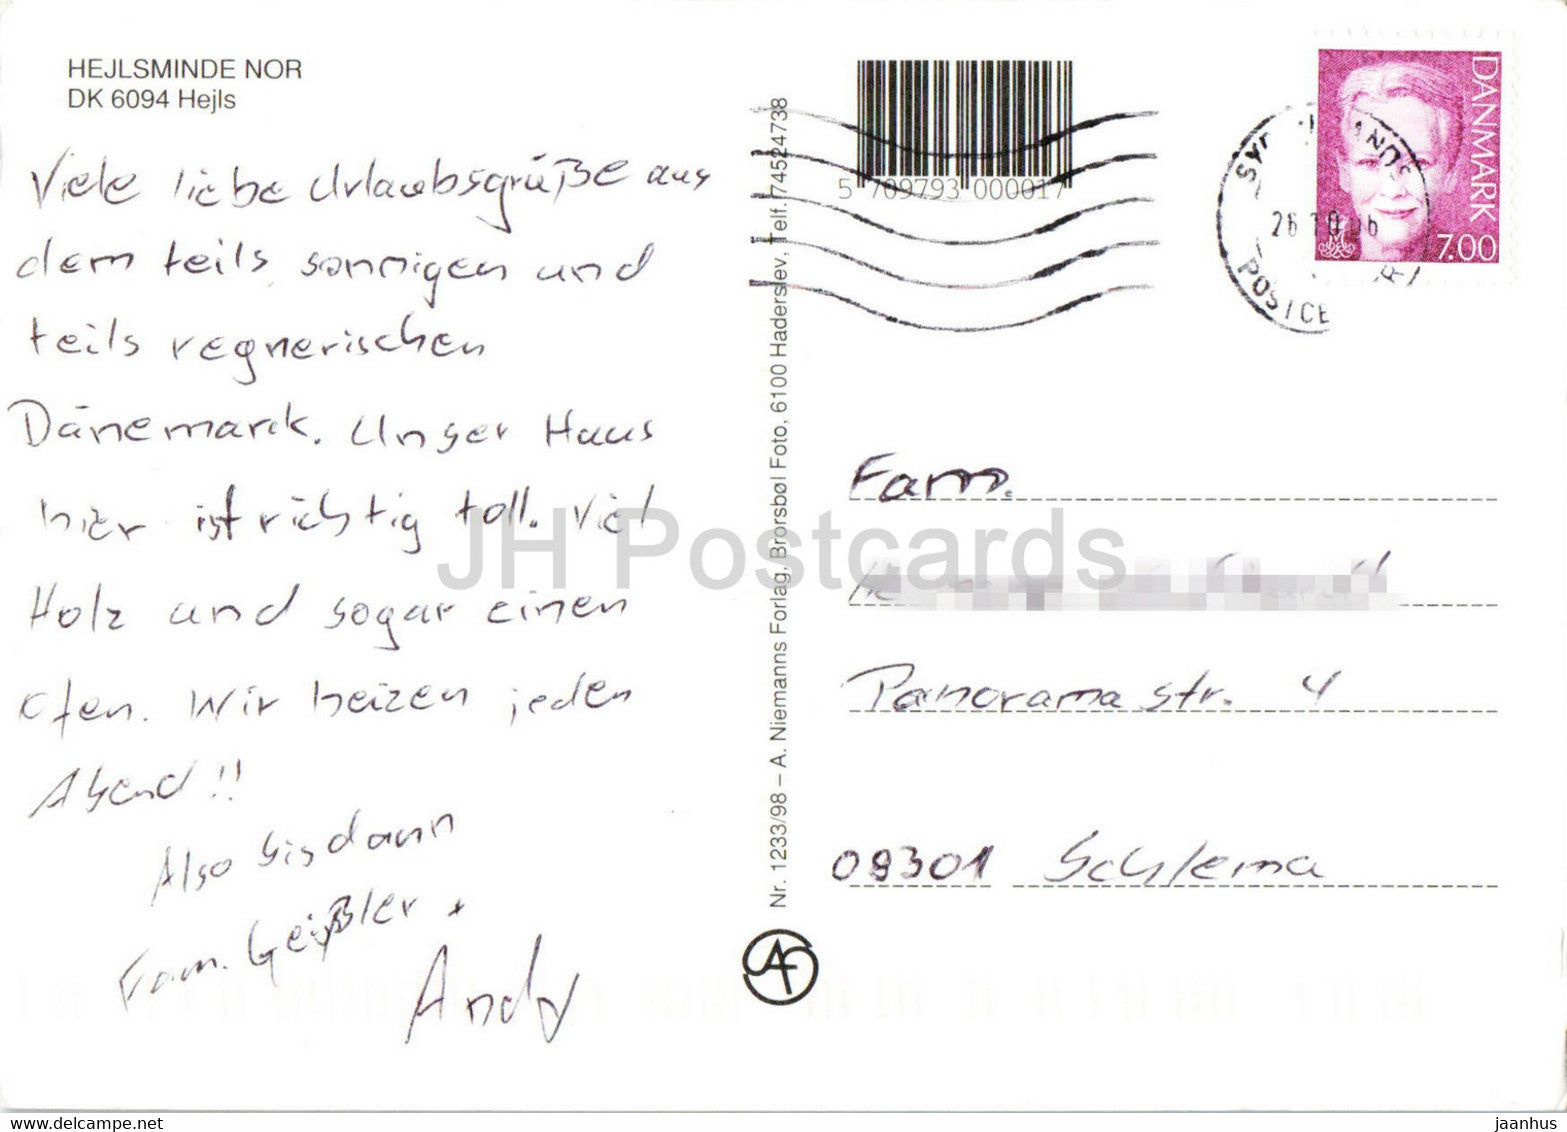 HEJLSMINDE NOR
DK 6094 Hejls
Viele liebe Urlaubsgrüße aus
dem teils sonnigen und
teils regnerischen
Dänemark. Unser Haus
hier ist richtig toll. Viel
Holz und sogar einen
Ofen. Wir heizen jeden
Abend!!
Also bis dann
Fam. Geißler +
Andy
Nr. 1233/98 – A. Niemanns Forlag, Brorsbøl Foto, 6100 Haderslev, Telf. 74524738
5 709793 000017
DANMARK
7.00
Fam.
Panoramastr. 4
08301 Schlema
JH Postcards
www.delcampe.net
jaanhus